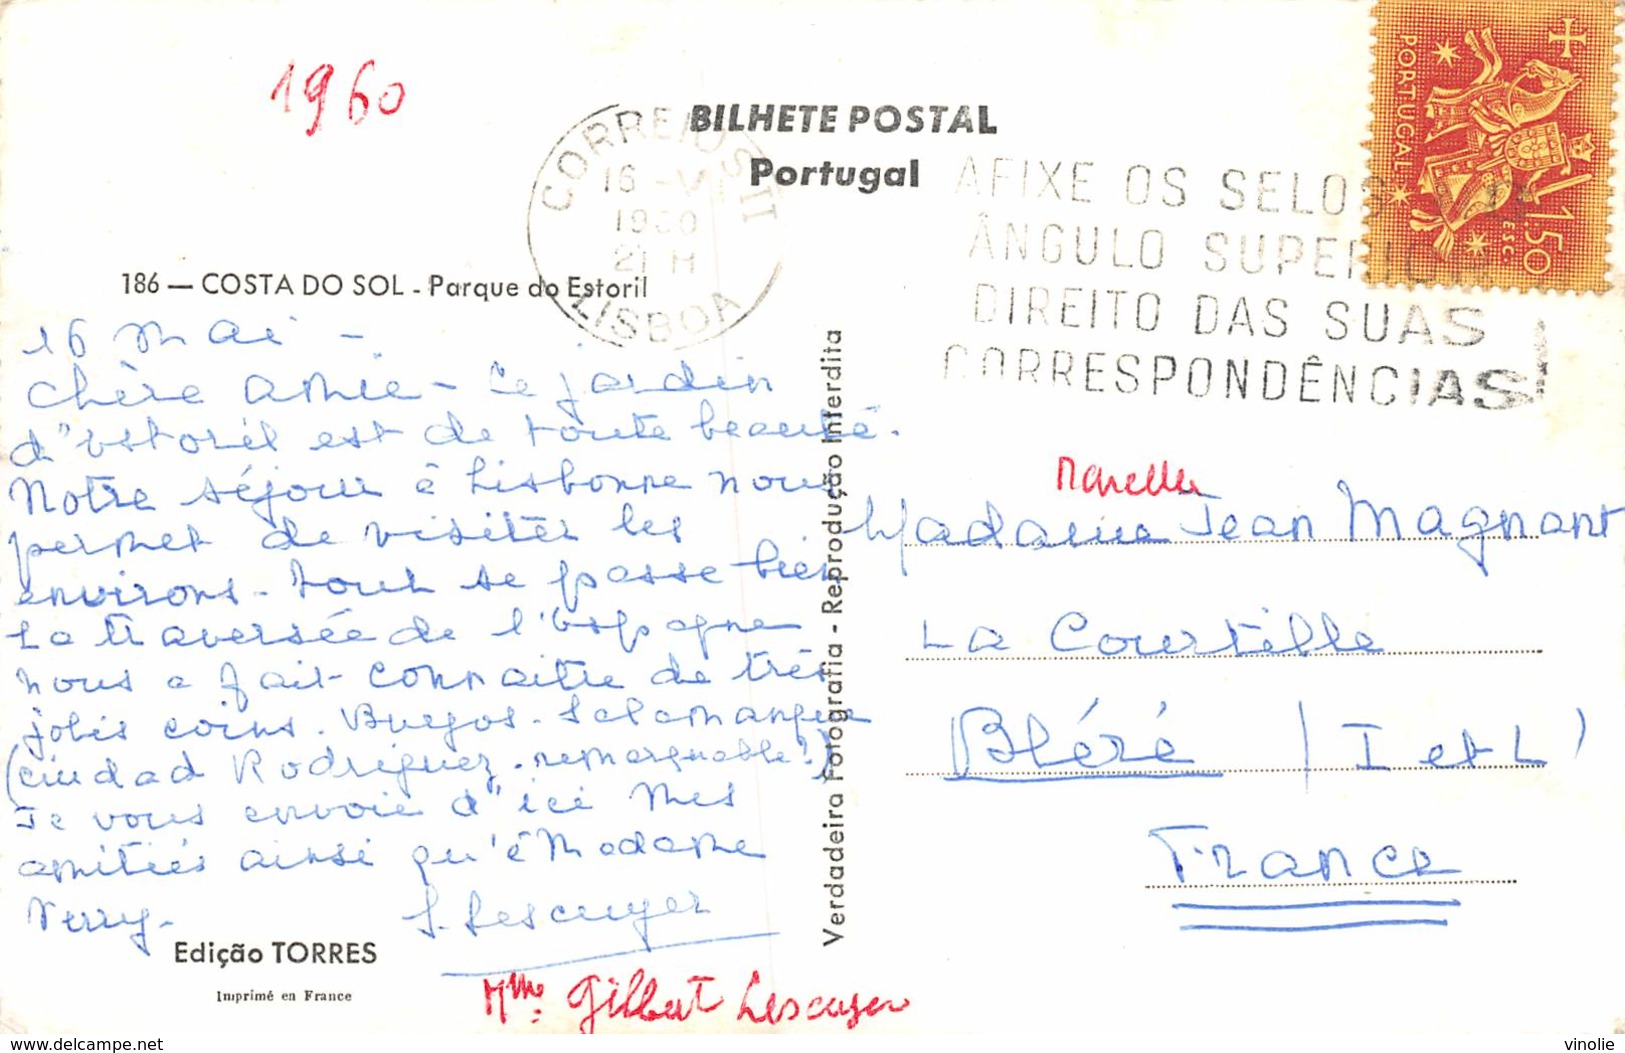 1960
BILHETE POSTAL
Portugal
CORREIOS III
16 -V
1960
21 H
LISBOA
AFIXE OS SELOS NO
ÂNGULO SUPERIOR
DIREITO DAS SUAS
CORRESPONDÊNCIAS
PORTUGAL
1$50
ESC.
186 — COSTA DO SOL - Parque do Estoril
16 Mai -
Chère Amie - Ce jardin
d'Estoril est de toute beauté.
Notre séjour à Lisbonne nous
permet de visiter les
environs - tout se passe bien
La traversée de l'Espagne
nous a fait connaitre de très
jolis coins. Burgos - Salamanque
(Ciudad Rodriguez - remarquable!)
Je vous envoie d'ici mes
amitiés ainsi qu'à Madame
Verry.
S. Lescuyer
Mme Gilbert Lescuyer
Edição TORRES
Imprimé en France
Verdadeira Fotografia - Reprodução Interdita
Madame Jean Magnant
La Courtille
Bléré (I et L)
France
delcampe.net
vinolie